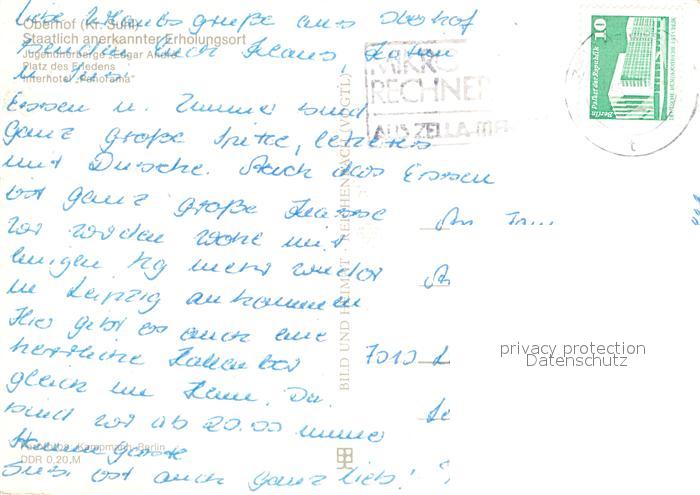 Liebe Urlaubsgrüße aus Oberhof
Oberhof (Kr. Suhl)
Staatlich anerkannter Erholungsort
senden Euch Klaus,
Jugendherberge „Edgar André“
Platz des Friedens
Interhotel „Panorama“
u. Susi.
Essen u. Zimmer sind
ganz große Spitze, letzteres
mit Dusche. Auch das Essen
ist ganz große Klasse
Wir werden wohl mit
einigen kg mehr wieder
in Leipzig ankommen
Hier gibt es auch eine
herrliche
gleich im Haus. Da
sind wir ab 20.00 immer
Stammgäste
Susi ist auch ganz lieb!
Kampmann, Berlin
DDR 0,20 M
BILD UND HEIMAT · REICHENBACH (VOGTL)
MIKRO
RECHNER
AUS ZELLA-MEH
10
Berlin Palast der Republik
DEUTSCHE DEMOKRATISCHE REPUBLIK
7010 L
privacy protection
Datenschutz